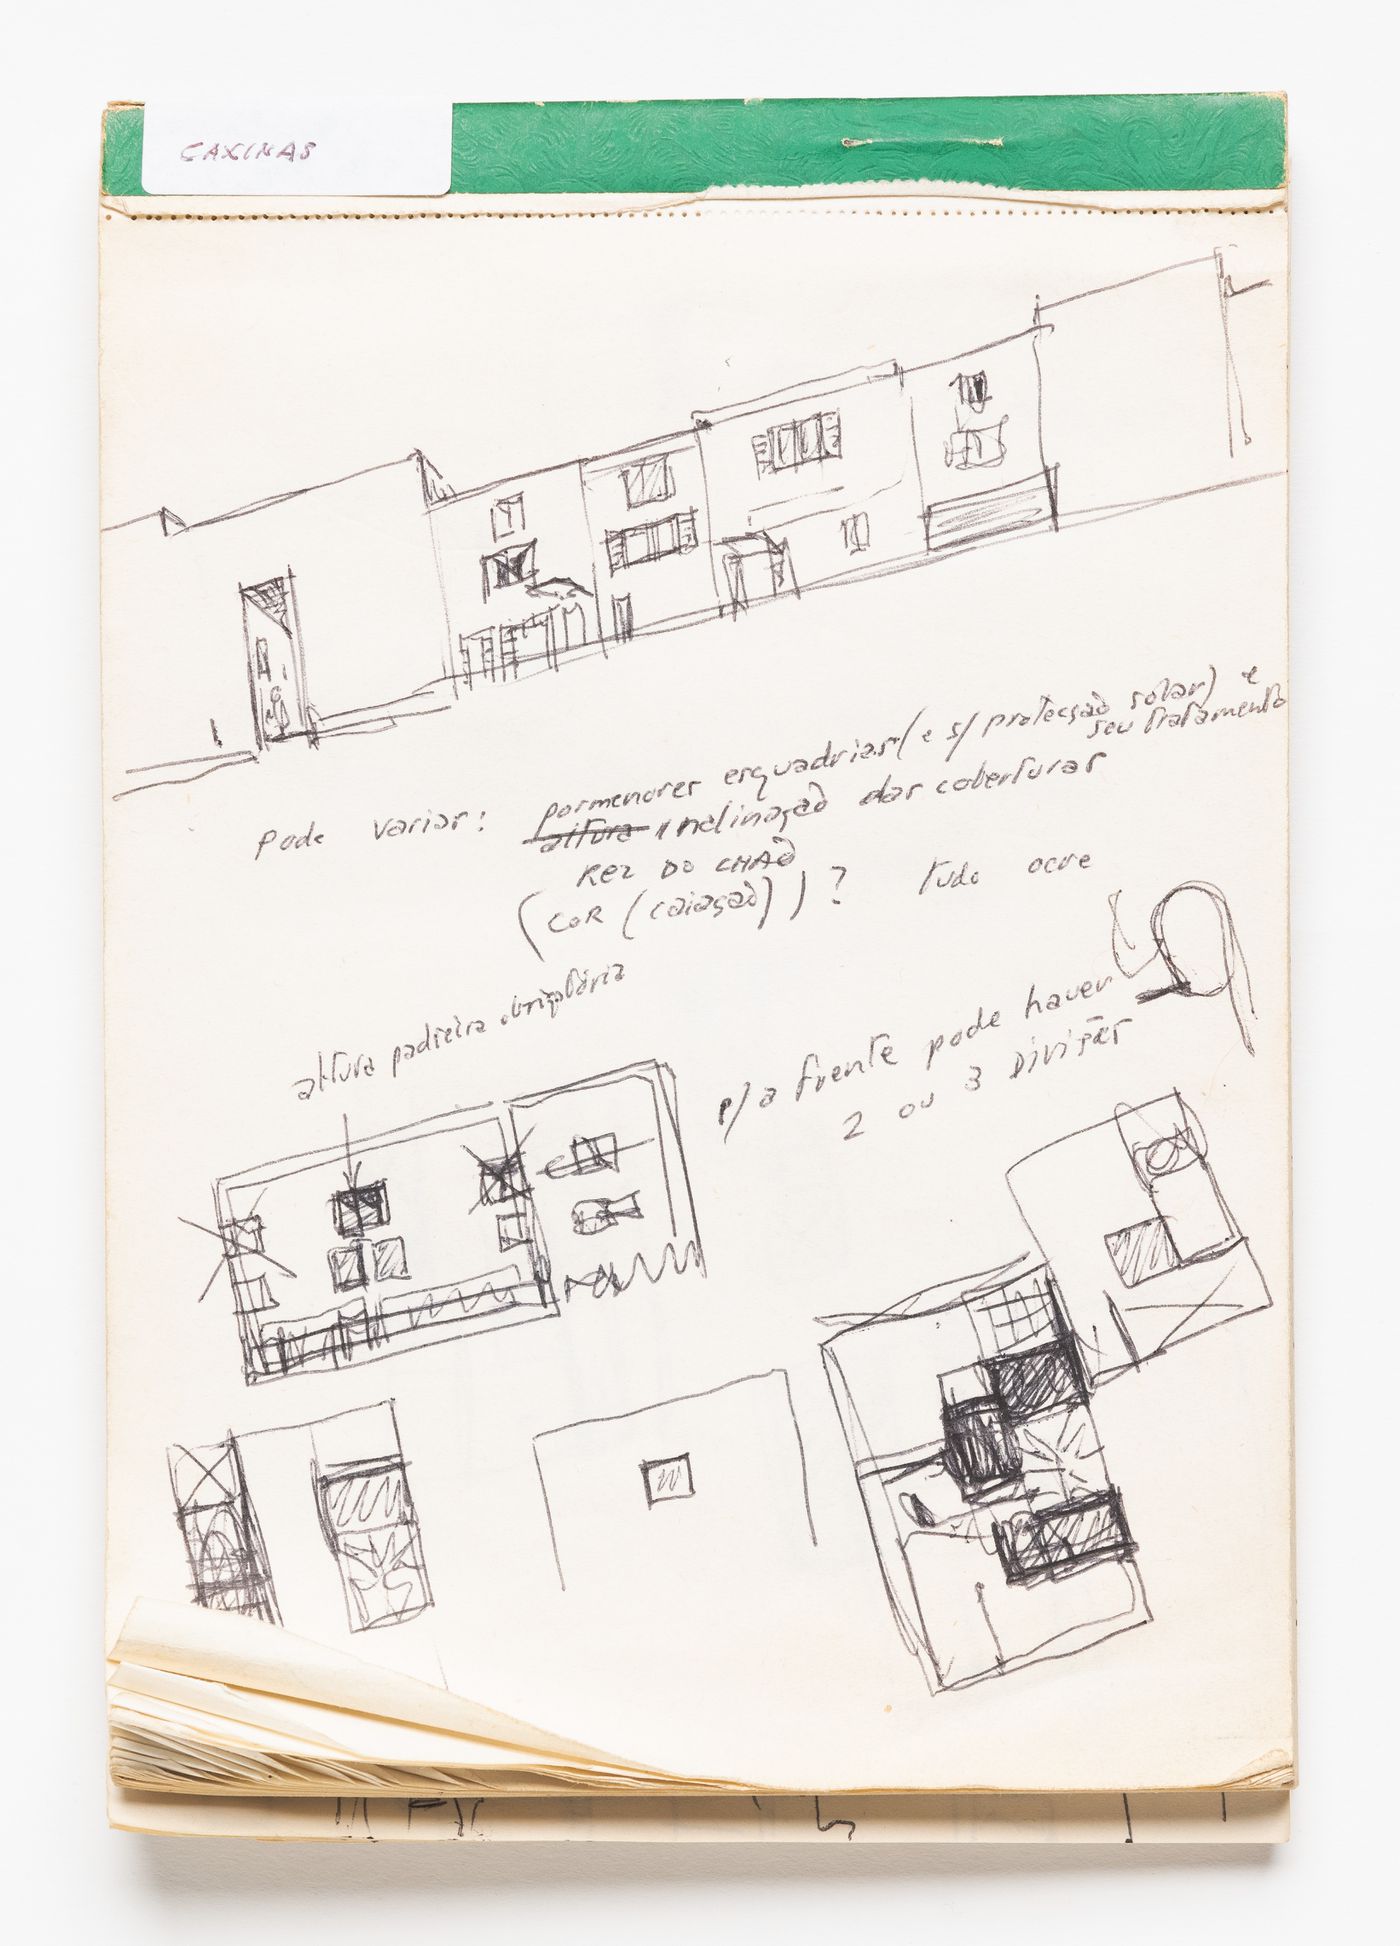 CAXINAS
Pode variar: pormenores esquadrias (e s/ protecção solar) e
seu tratamento
altura inclinação das coberturas
REZ DO CHÃO
(COR (caiação)) ? tudo ocre
altura padieira obrigatória
p/ a frente pode haver
2 ou 3 DIVISÕES